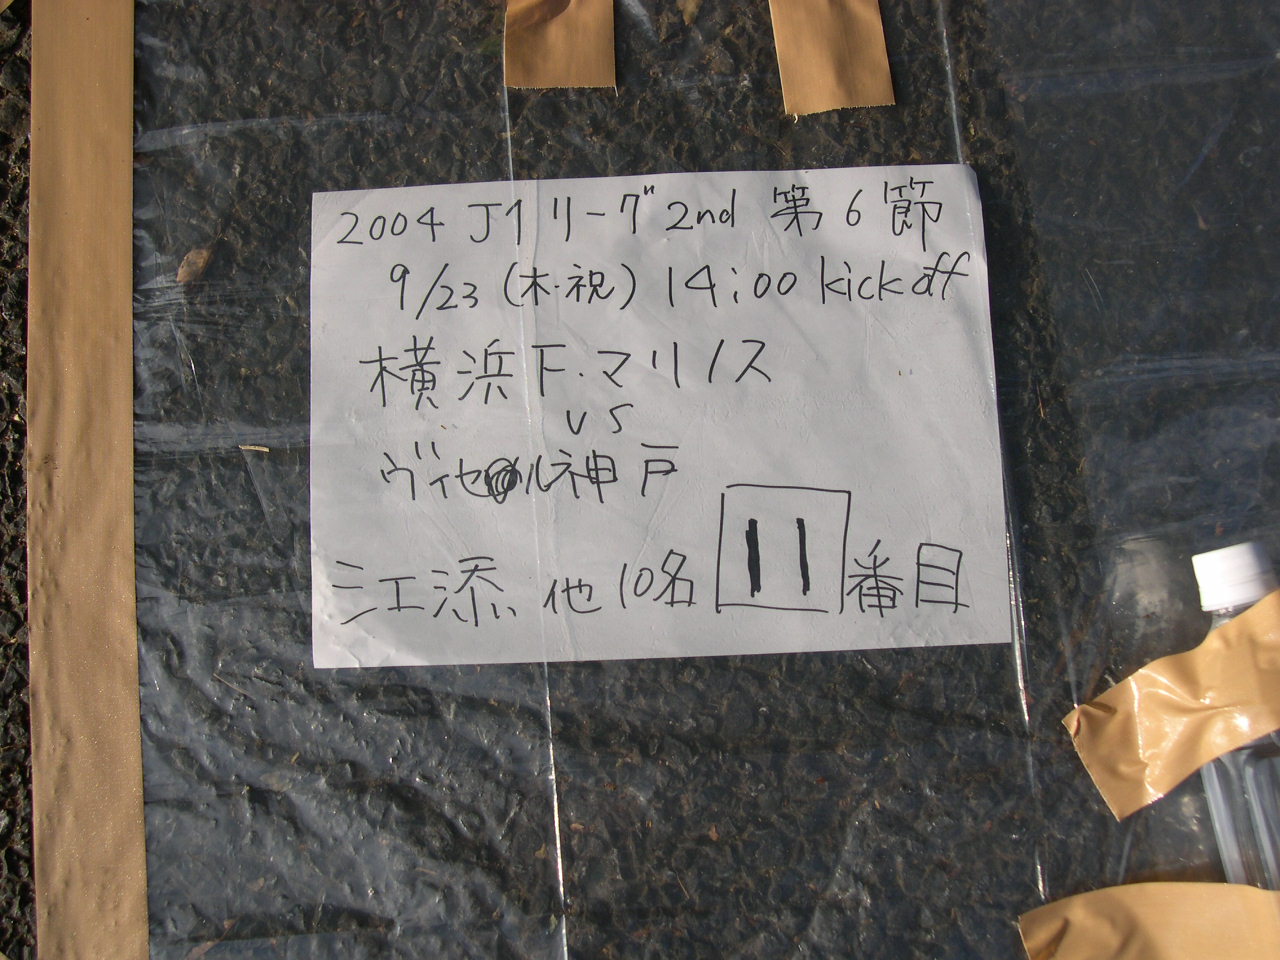 2004 J1リーグ 2nd 第6節
9/23 (木・祝) 14:00 kick off
横浜F・マリノス
VS
ヴィセル神戸
三工添 他10名 11番目